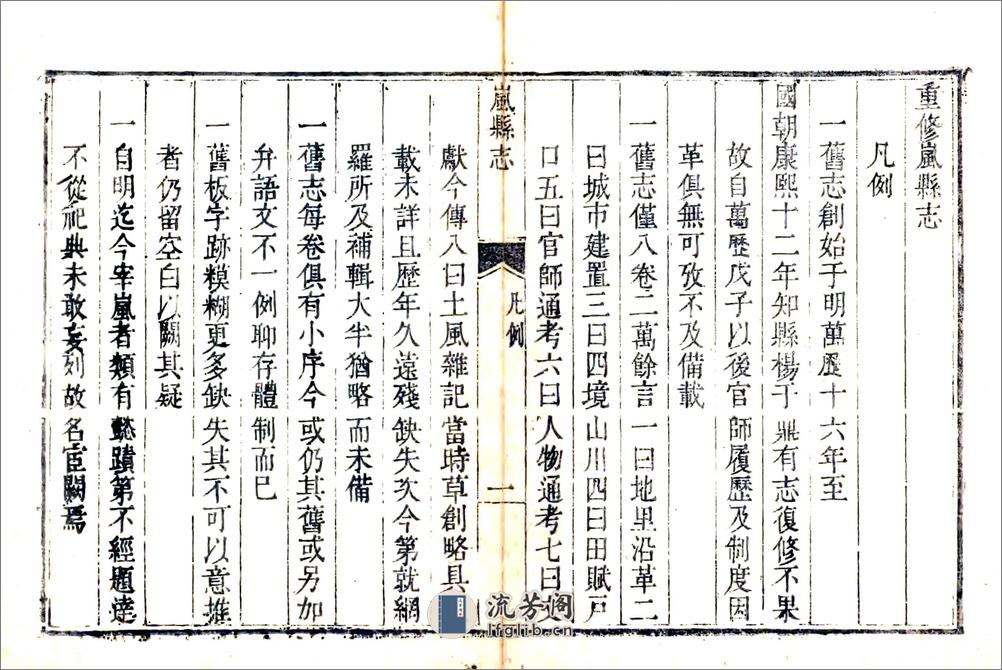 重修嵐縣志
凡例
一舊志創始于明萬歷十六年至
國朝康熙十二年知縣楊于鼎有志復修不果
故自萬歷戊子以後官師履歷及制度因
革俱無可攷不及備載
一舊志僅八卷二萬餘言一曰地里沿革二
曰城市建置三曰四境山川四曰田賦戸
口五曰官師通考六曰人物通考七曰文
嵐縣志
凡例
一
獻今傳八曰土風雜記當時草創略具
載未詳且歷年久遠殘缺失次今第就網
羅所及補輯大半猶略而未備
一舊志每卷俱有小序今或仍其舊或另加
弁語文不一例聊存體制而已
一舊板字跡糢糊更多缺失其不可以意推
者仍留空白以闕其疑
一自明迄今宰嵐者類有懿蹟第不經題達
不從祀典未敢妄列故名宦闕焉
流芳閣
lfglib.cn